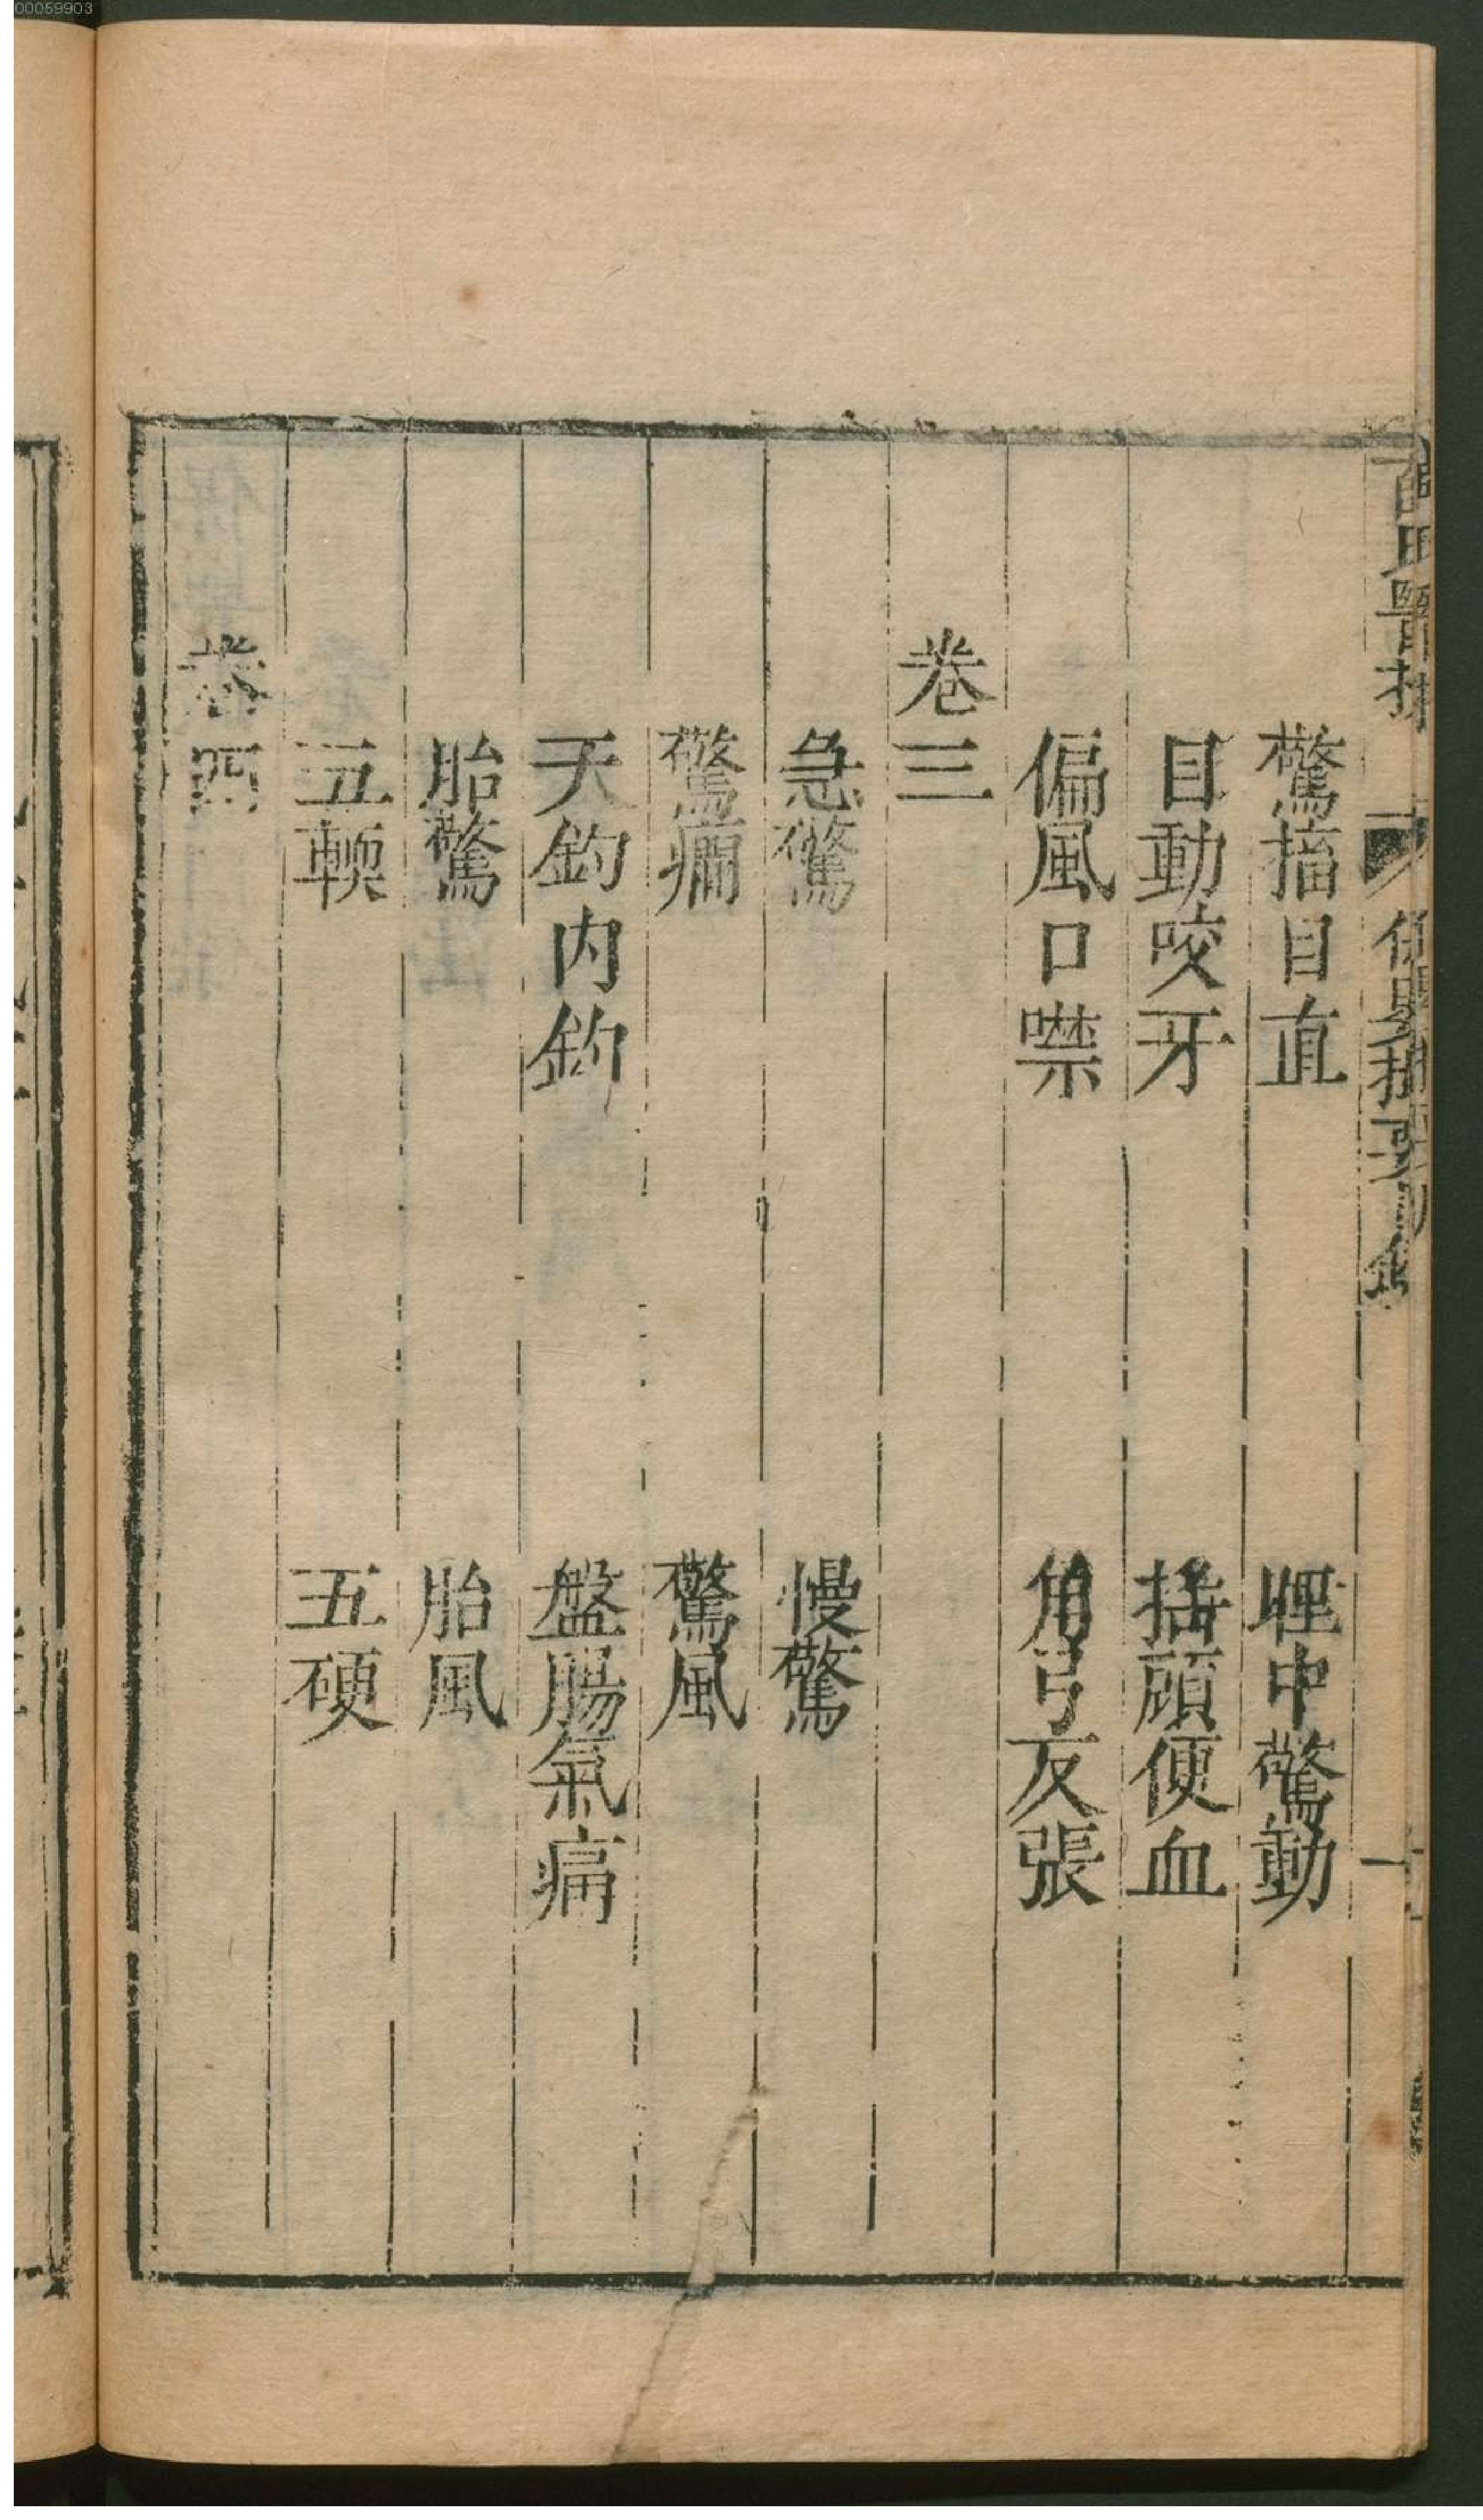 00059903
驚搐目直　睡中驚動
目動咬牙　揺頭便血
偏風口噤　角弓反張
卷三
急驚　慢驚
驚癇　驚風
天釣内釣　盤腸氣痛
胎驚　胎風
五輭　五硬
卷四